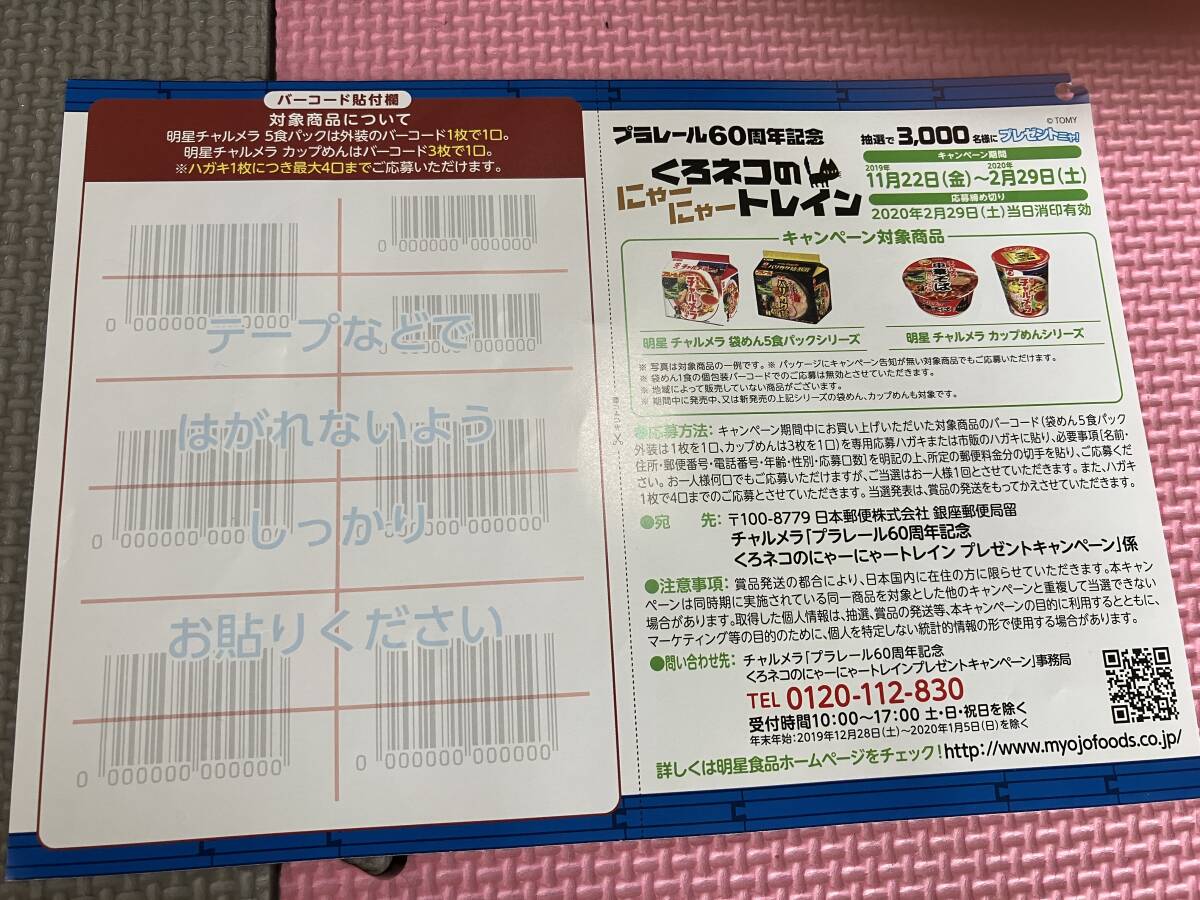 バーコード貼付欄
対象商品について
明星チャルメラ 5食パックは外装のバーコード1枚で1口。
明星チャルメラ カップめんはバーコード3枚で1口。
※ハガキ1枚につき最大4口までご応募いただけます。
0 000000 000000
0 000000 000000
0 000000 000000
テープなどで
はがれないよう
0 000000 000000
0 000000 000000
しっかり
お貼りください
0 000000 000000
0 000000 000000
© TOMY
プラレール60周年記念
抽選で3,000名様にプレゼントニャ!
くろネコの
にゃーにゃートレイン
キャンペーン期間
2019年 2020年
11月22日(金)~2月29日(土)
応募締め切り
2020年2月29日(土)当日消印有効
キャンペーン対象商品
明星 チャルメラ 袋めん5食パックシリーズ
明星 チャルメラ カップめんシリーズ
※ 写真は対象商品の一例です。※ パッケージにキャンペーン告知が無い対象商品でもご応募いただけます。
※ 袋めん1食の個包装バーコードでのご応募は無効とさせていただきます。
※ 地域によって販売していない商品がございます。
※ 期間中に発売中、又は新発売の上記シリーズの袋めん、カップめんも対象です。
●応募方法: キャンペーン期間中にお買い上げいただいた対象商品のバーコード(袋めん5食パック
外装は1枚を1口、カップめんは3枚を1口)を専用応募ハガキまたは市販のハガキに貼り、必要事項[名前・
住所・郵便番号・電話番号・年齢・性別・応募口数]を明記の上、所定の郵便料金分の切手を貼り、ご応募くだ
さい。お一人様何口でもご応募いただけますが、ご当選はお一人様1回とさせていただきます。また、ハガキ
1枚で4口までのご応募とさせていただきます。当選発表は、賞品の発送をもってかえさせていただきます。
●宛 先: 〒100-8779 日本郵便株式会社 銀座郵便局留
チャルメラ「プラレール60周年記念
くろネコのにゃーにゃートレイン プレゼントキャンペーン」係
●注意事項: 賞品発送の都合により、日本国内に在住の方に限らせていただきます。本キャン
ペーンは同時期に実施されている同一商品を対象とした他のキャンペーンと重複して当選できない
場合があります。取得した個人情報は、抽選、賞品の発送等、本キャンペーンの目的に利用するとともに、
マーケティング等の目的のために、個人を特定しない統計的情報の形で使用する場合があります。
●問い合わせ先: チャルメラ「プラレール60周年記念
くろネコのにゃーにゃートレインプレゼントキャンペーン」事務局
TEL 0120-112-830
受付時間10:00~17:00 土・日・祝日を除く
年末年始:2019年12月28日(土)~2020年1月5日(日)を除く
詳しくは明星食品ホームページをチェック!http://www.myojofoods.co.jp/